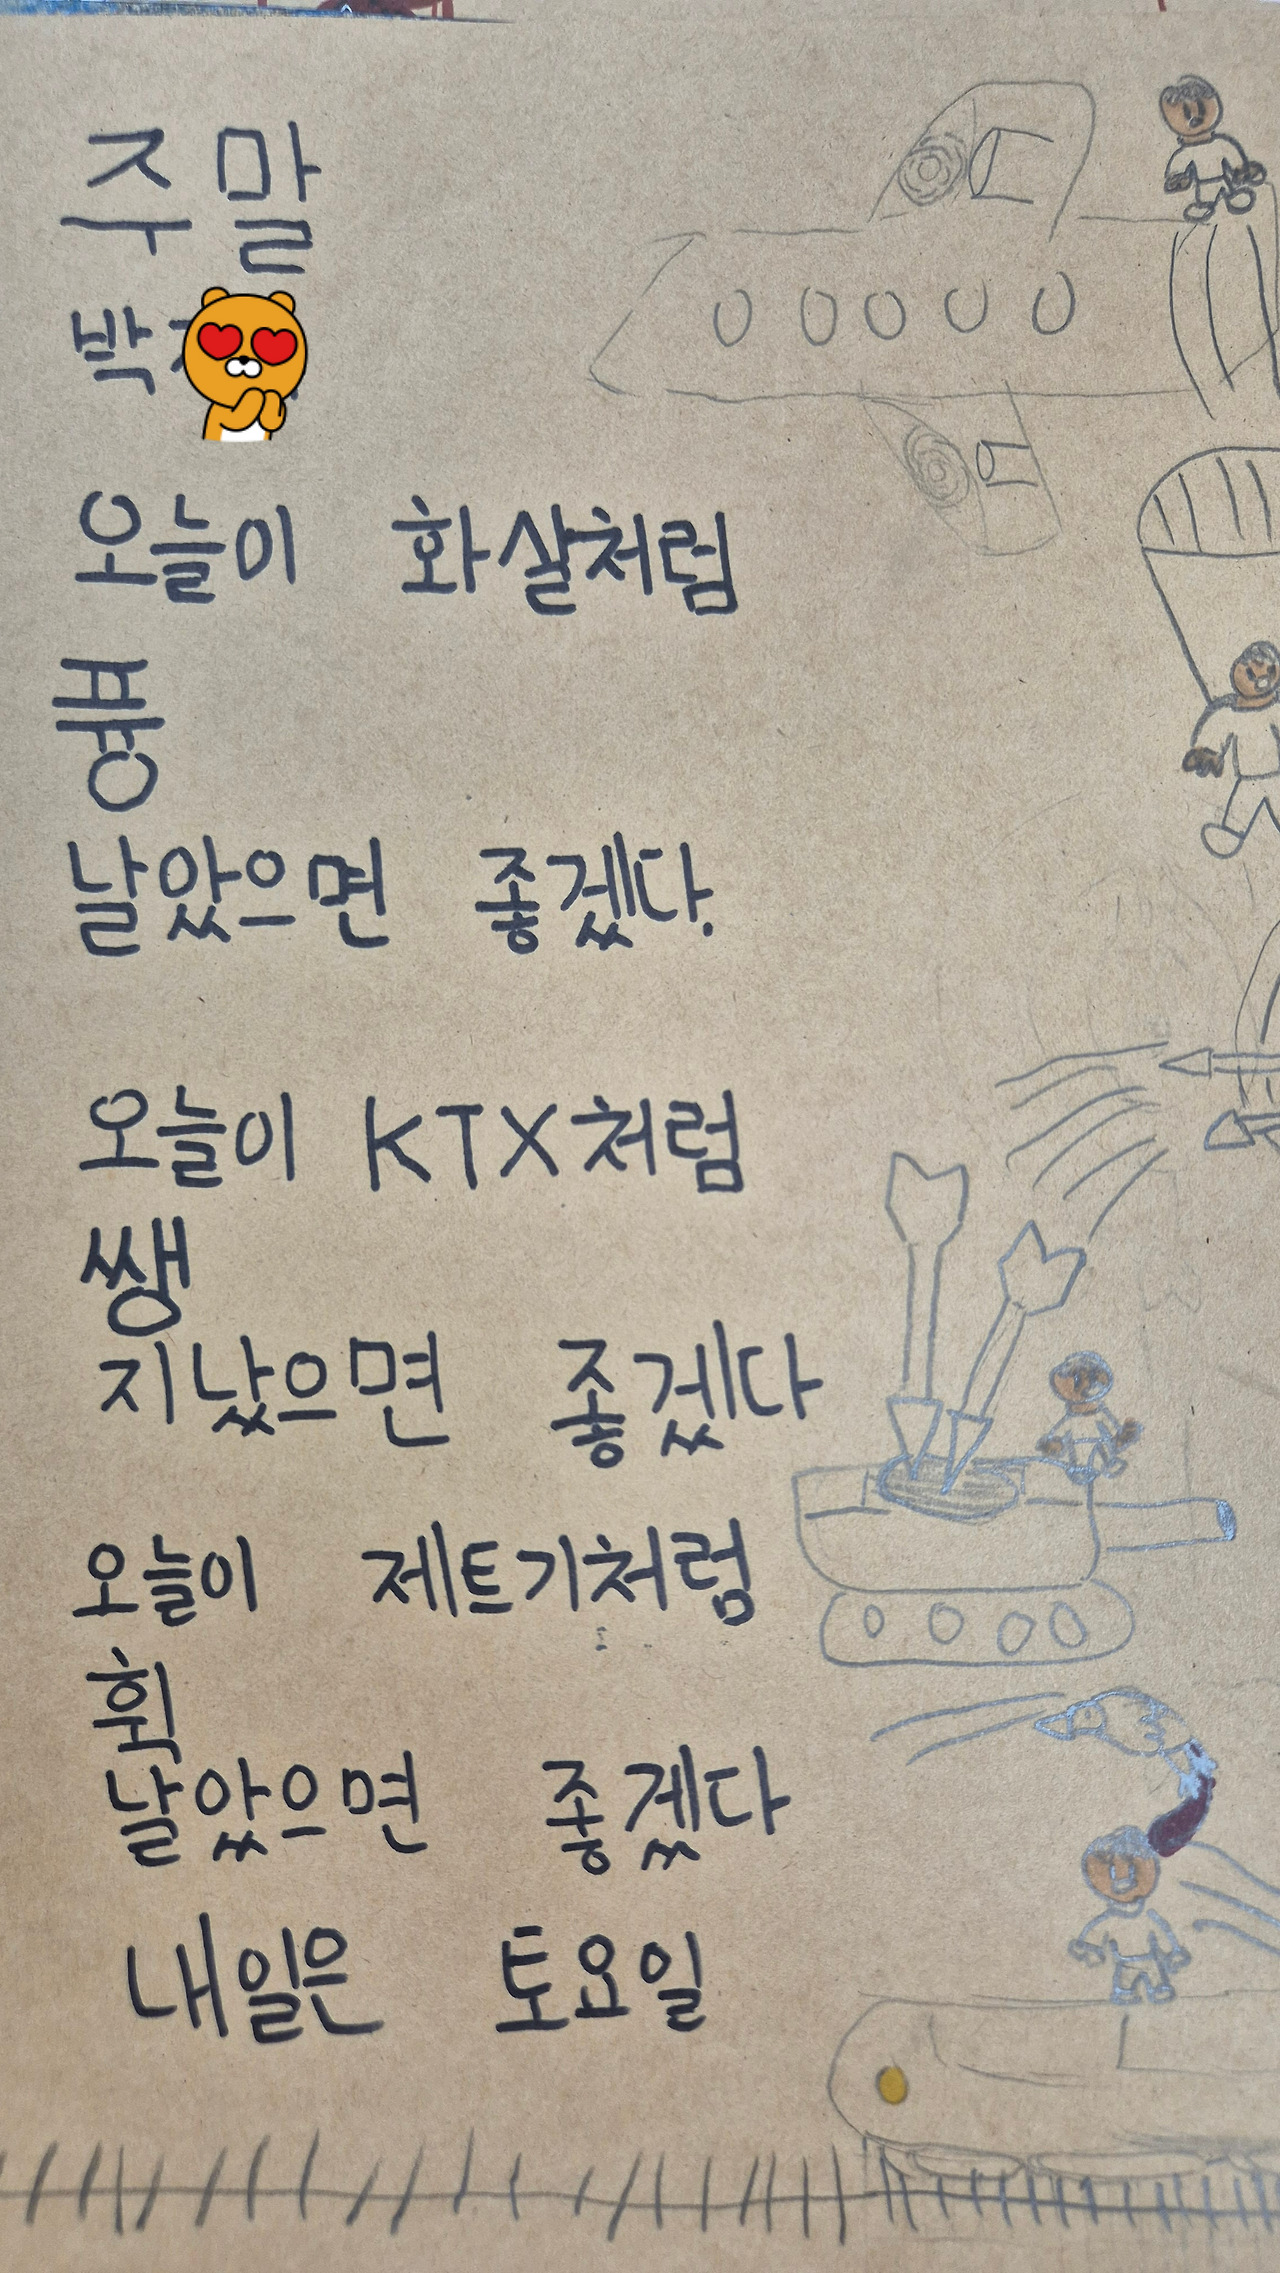 주말
박
오늘이 화살처럼
퓽
날았으면 좋겠다.
오늘이 KTX처럼
쌩
지났으면 좋겠다
오늘이 제트기처럼
휙
날았으면 좋겠다
내일은 토요일